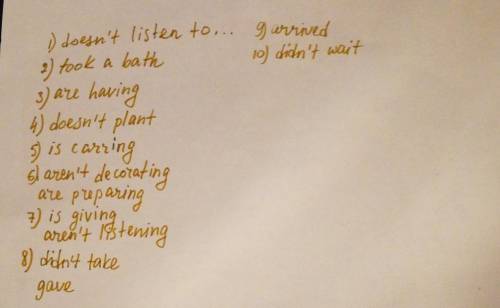 1) doesn't listen to...
2) took a bath
3) are having
4) doesn't plant
5) is carring
6) aren't decorating
are preparing
7) is giving
aren't listening
8) didn't take
gave
9) arrived
10) didn't wait